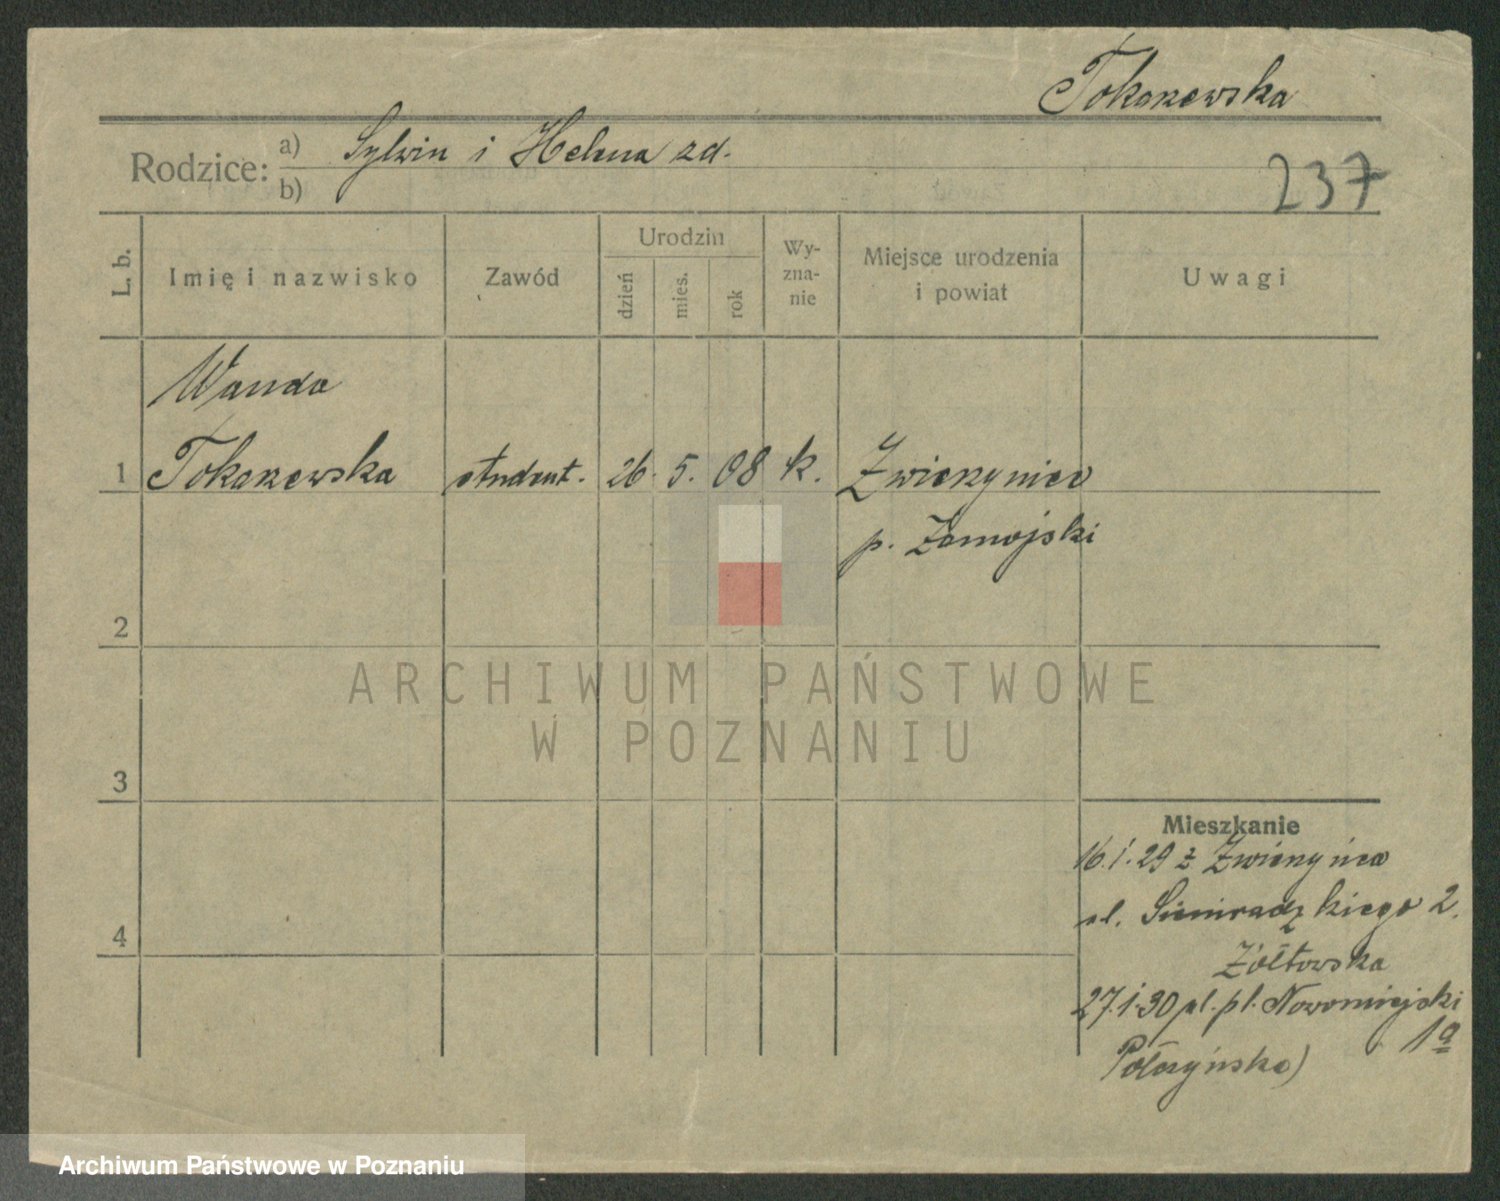 Tokarzewska
Rodzice: a) Sylwin i Helena zd.
b)
237
L. b.
Imię i nazwisko
Zawód
Urodzin
dzień
mies.
rok
Wy-
zna-
nie
Miejsce urodzenia
i powiat
Uwagi
Wanda
1 Tokarzewska student. 26. 5. 08 k. Zwierzyniec
p. Zamojski
2
3
4
Mieszkanie
16.1.29 z Zwierzyńca
ul. Siemiradzkiego 2.
Żółtowska
27.1.30 pl. Nowomiejski
1a
ARCHIWUM PAŃSTWOWE
W POZNANIU
Archiwum Państwowe w Poznaniu